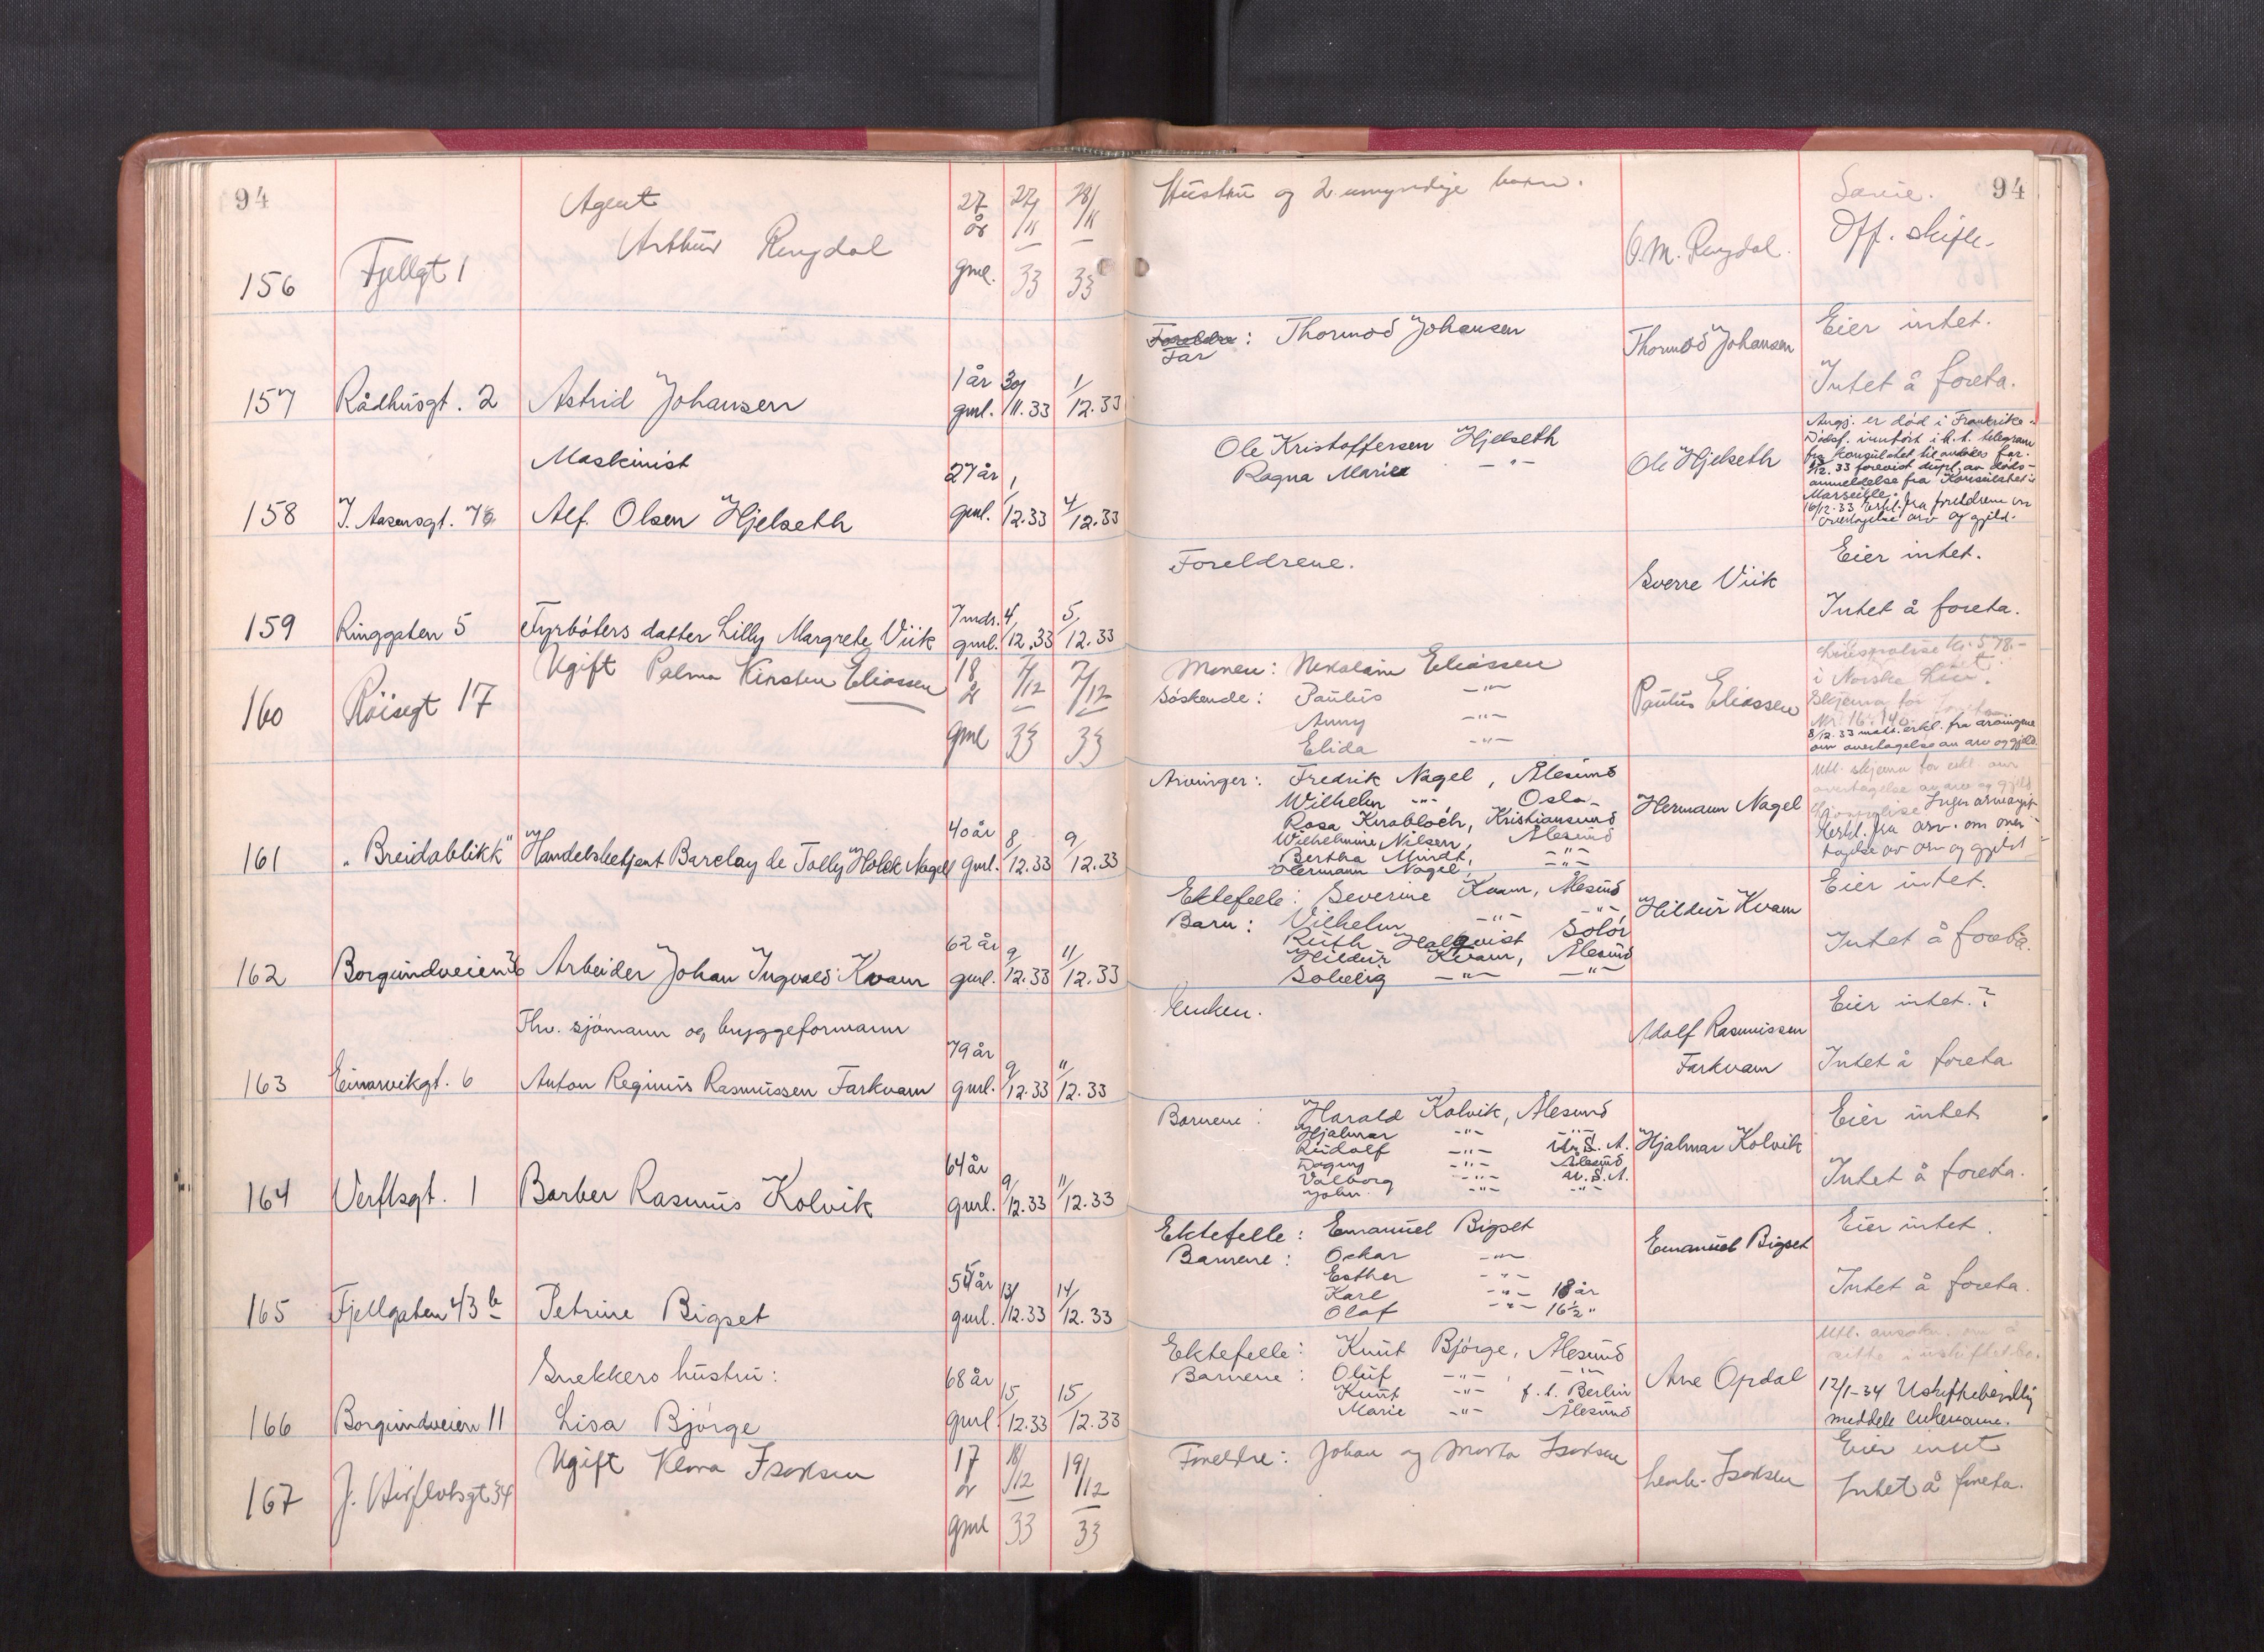 94
94
156 Fjellgt 1 Agent
Arthur Ringdal
27 år gml. 27/11 33 28/11 33
Hustru og 2 umyndige barn.
O. M. Ringdal.
Off. skifte.
157 Rådhusgt. 2 Astrid Johansen
1 år gml. 30/11.33 1/12.33
Foreldre: Thormod Johansen
Far
Thormod Johansen
Eier intet.
Intet å foreta.
158 I. Aasensgt. Maskinist
Alf Olsen Hjelseth
27 år gml. 1/12.33 4/12.33
Ole Kristoffersen Hjelseth
Ragna Marie -"-
Ole Hjelseth
Angj. er død i Frankrike.
Dødsf. innført i h.t. telegram
fra konsulatet til avdødes far.
12.33 forevist dupl. av døds-
anmeldelse fra Konsulatet i
Marseille.
16/12.33 erkl. fra foreldrene om
overtagelse arv og gjeld.
159 Ringgaten 5 Fyrbøters datter Lilly Margrete Viik
7 mds. gml. 4/12.33 5/12.33
Foreldrene.
Sverre Viik
Eier intet.
Intet å foreta.
160 Röisegt 17 Ugift Palma Kirsten Eliassen
18 år gml 7/12 33 7/12 33
Moren: Nikoline Eliassen
Søskende: Paulus -"-
Anny -"-
Elida -"-
Paulus Eliassen
Livspolise kr. 578.-
i Norske Liv.
Skjema for
Nr. 16.140.
8/12.33 mott. erkl. fra arvingene
om overtagelse av arv og gjeld.
161 "Breidablikk" Handelsbetjent Barclay de Tolly Holck Nagel
40 år gml. 8/12.33 9/12.33
Arvinger: Fredrik Nagel, Ålesund
Wilhelm -"-, Oslo
Rosa Knobloch, Kristiansund
Wilhelmine Nilsen, Ålesund
Bertha Mindt, -"-
Hermann Nagel, -"-
Hermann Nagel
Utl. skjema for erkl. om
overtagelse av arv og gjeld
erkl. fra arv. om over-
tagelse av arv og gjeld
162 Borgundveien Arbeider Johan Ingvald Kvam
62 år gml. 9/12.33 11/12.33
Ektefelle: Severine Kvam, Ålesund
Barn: Vilhelm -"- -"-
Ruth Halqvist Solør
Hildur Kvam, Ålesund
Solveig -"- -"-
Hildur Kvam
Eier intet.
Intet å foreta.
163 Einarvikgt. 6 Fhv. sjømann og bryggeformann
Anton Reginius Rasmussen Farkvam
79 år gml. 9/12.33 11/12.33
Enken.
Adolf Rasmussen
Farkvam
Eier intet.?
Intet å foreta
164 Verftsgt. 1 Barber Rasmus Kolvik
64 år gml. 9/12.33 11/12.33
Barnene: Harald Kolvik, Ålesund
Hjalmar -"- -"-
Rudolf -"- U.S.A.
Dagny -"- Ålesund
Valborg -"- U.S.A.
John -"- -"-
Hjalmar Kolvik
Eier intet
Intet å foreta.
165 Fjellgaten 43 b Petrine Bigset
år gml. 13/12.33 14/12.33
Ektefelle: Emanuel Bigset
Barnene: Oskar -"-
Esther -"-
Karl -"- 18 år
Olaf -"- 16½ "
Emanuel Bigset
Eier intet.
Intet å foreta.
166 Borgundveien 11 Snekkers hustru:
Lisa Bjørge
68 år gml. 15/12.33 15/12.33
Ektefelle: Knut Bjørge, Ålesund
Barnene: Oluf -"-, -"-
Knut -"- f.t. Berlin
Marie -"- Ålesund
Arne Opdal
Utl. ansøkn. om å
sitte i uskiftet bo.
12/1-34 Uskiftebevilling
meddelt enkemann.
167 34 Ugift Klara Isaksen
17 år gml 18/12 33 19/12 33
Foreldre: Johan og Marta Isaksen
Isaksen
Eier intet
Intet å foreta.